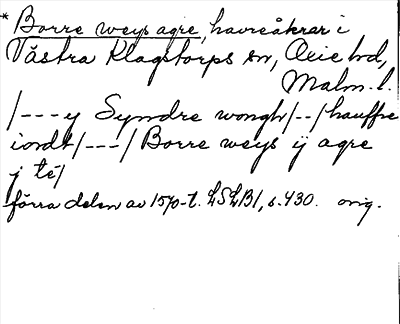 * Borre weys agre, havreåkrar i
Västra Klagstorps sn, Oxie hd,
Malm. l.
/---y Syndre wongh/--/hauffre
iordt/---/Borre weys ij agre
j té/
förra delen av 1570-t. LSLB1, s. 430. orig.